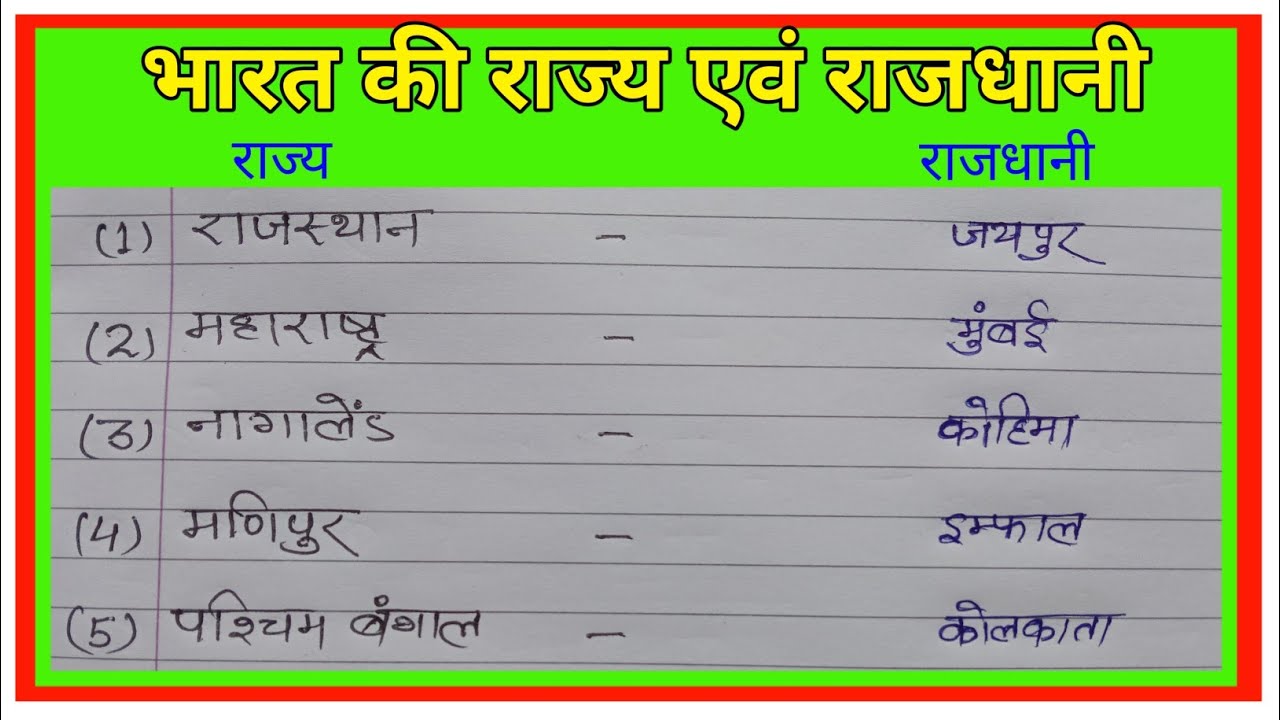 भारत की राज्य एवं राजधानी
राज्य राजधानी
(1) राजस्थान – जयपुर
(2) महाराष्ट्र – मुंबई
(3) नागालेंड – कोहिमा
(4) मणिपुर – इम्फाल
(5) पश्चिम बंगाल – कोलकाता